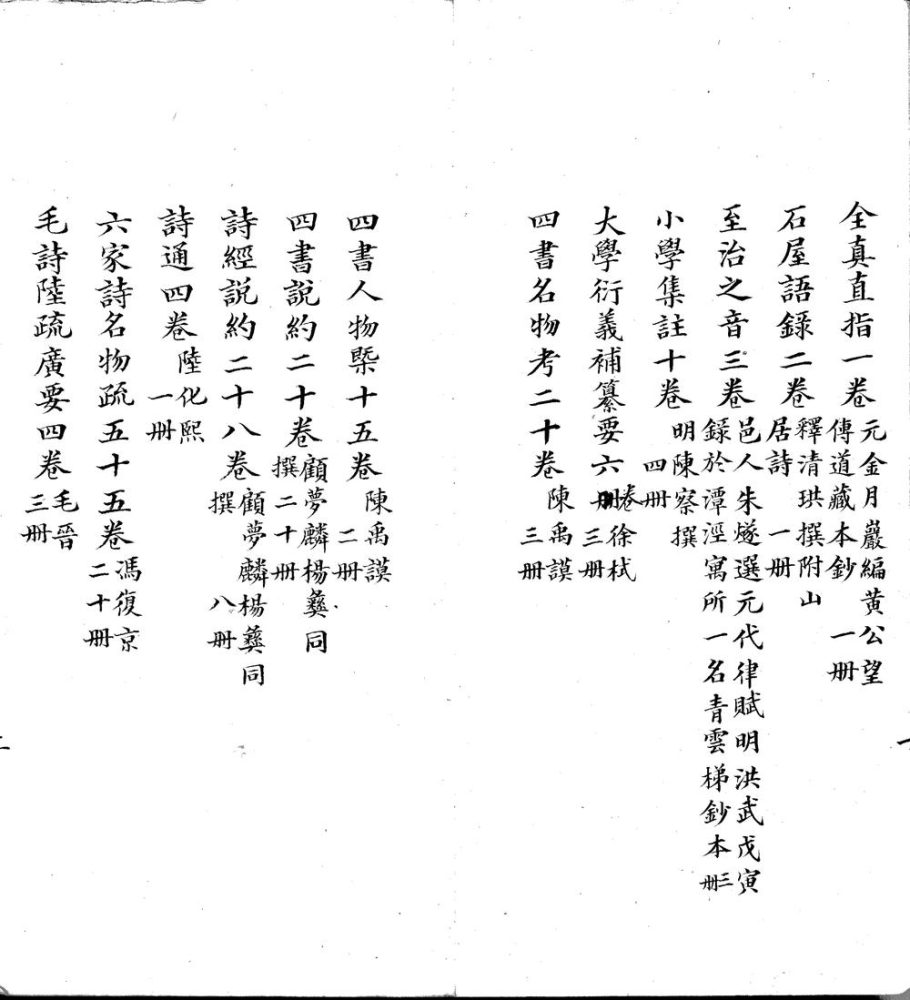 全真直指一卷 元金月巖編黃公望傳道藏本鈔 一册
石屋語錄二卷 釋清珙撰附山居詩 一册
至治之音三卷 邑人朱燧選元代律賦明洪武戊寅錄於潭涇寓所一名青雲梯鈔本三册
小學集註十卷 明陳察撰 四册
大學衍義補纂要六卷 徐栻 三册
四書名物考二十卷 陳禹謨 三册
四書人物槩十五卷 陳禹謨 二册
四書說約二十卷 顧夢麟楊彝同撰 二十册
詩經說約二十八卷 顧夢麟楊彝同撰 八册
詩通四卷 陸化熙 一册
六家詩名物疏五十五卷 馮復京 二十册
毛詩陸疏廣要四卷 毛晉 三册